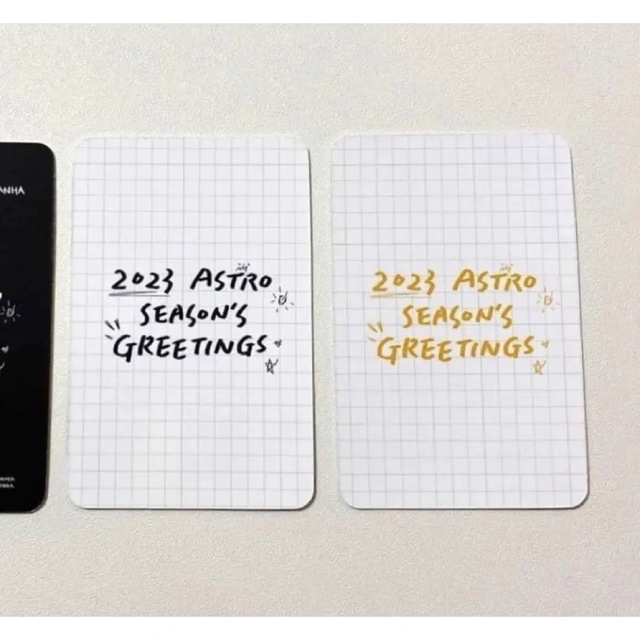 ANHA
2023 ASTRO
SEASON'S
GREETINGS
2023 ASTRO
SEASON'S
GREETINGS